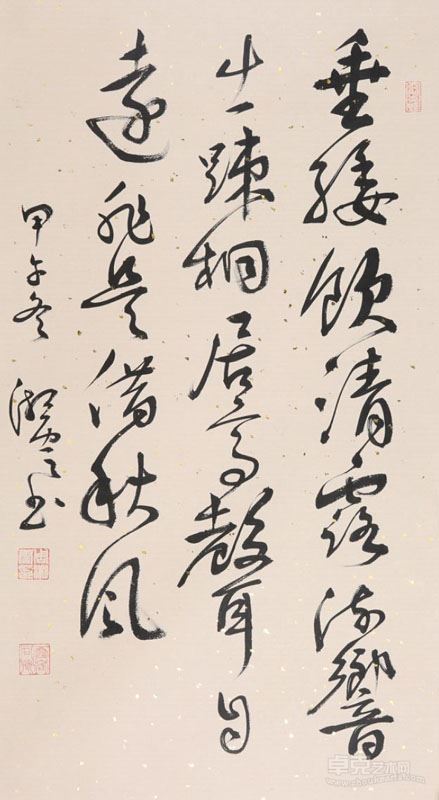 垂緌飲清露流響
出踈桐居高聲自
遠非是借秋風
甲午冬 書
卓克艺术网